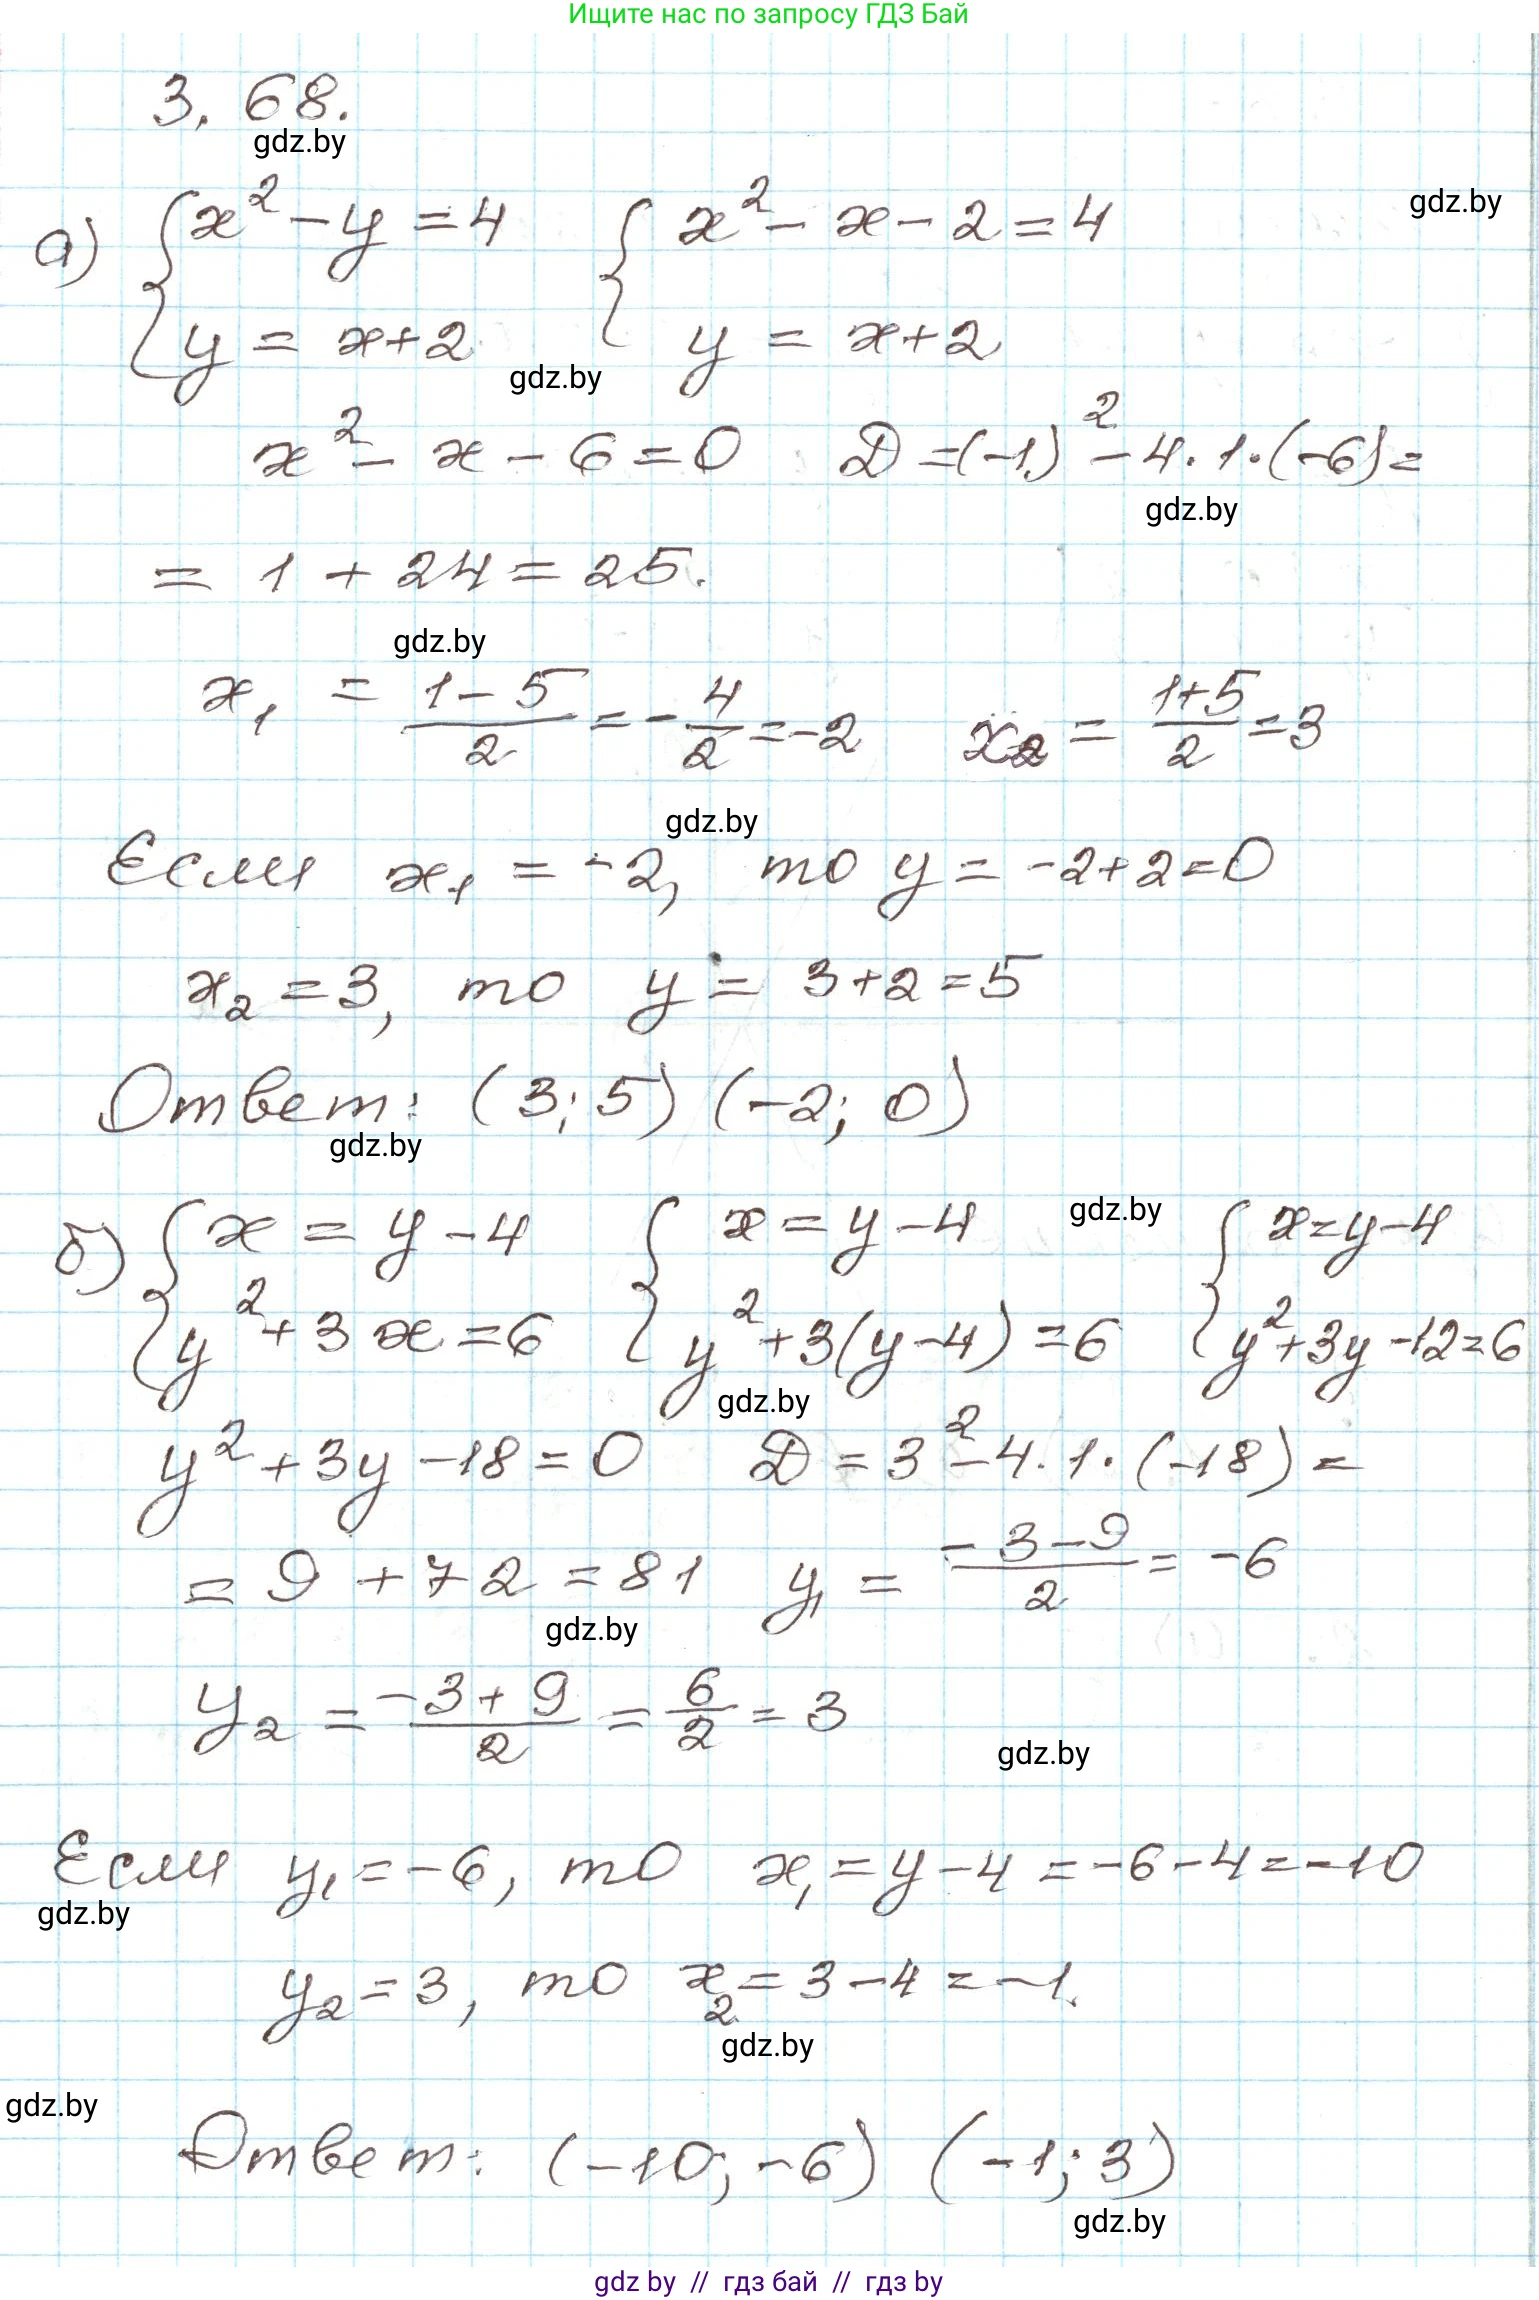 Ищите нас по запросу ГДЗ Бай
3.68.
gdz.by
gdz.by
а) { x² - y = 4 { x² - x - 2 = 4
y = x+2 y = x+2
gdz.by
x² - x - 6 = 0 D = (-1)² - 4·1·(-6) =
gdz.by
= 1 + 24 = 25.
gdz.by
x₁ = (1-5)/2 = -4/2 = -2 x₂ = (1+5)/2 = 3
gdz.by
Если x₁ = -2, то y = -2+2=0
x₂ = 3, то y = 3+2=5
Ответ: (3; 5) (-2; 0)
gdz.by
gdz.by
б) { x = y - 4 { x = y - 4 { x = y - 4
y² + 3x = 6 y² + 3(y-4) = 6 y² + 3y - 12 = 6
gdz.by
y² + 3y - 18 = 0 D = 3² - 4·1·(-18) =
= 9 + 72 = 81 y₁ = (-3-9)/2 = -6
gdz.by
y₂ = (-3+9)/2 = 6/2 = 3
gdz.by
Если y₁ = -6, то x₁ = y - 4 = -6 - 4 = -10
gdz.by
y₂ = 3, то x₂ = 3 - 4 = -1.
gdz.by
gdz.by
Ответ: (-10; -6) (-1; 3)
gdz.by
gdz by // гдз бай // гдз by